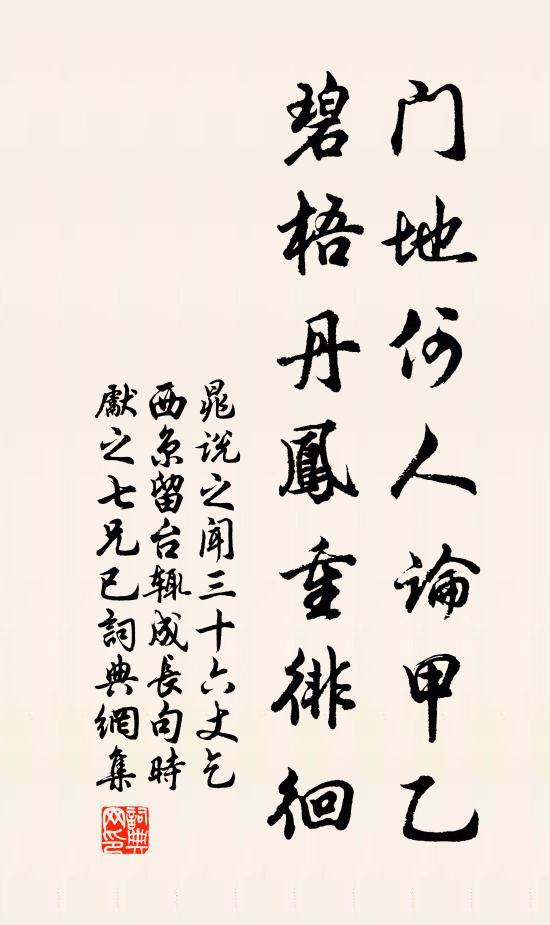 门地何人論甲乙
碧梧丹鳳重徘徊
晁说之闻三十六丈乞
西京留台辄成长句時
獻之七兄已詞典網集
詞典网印